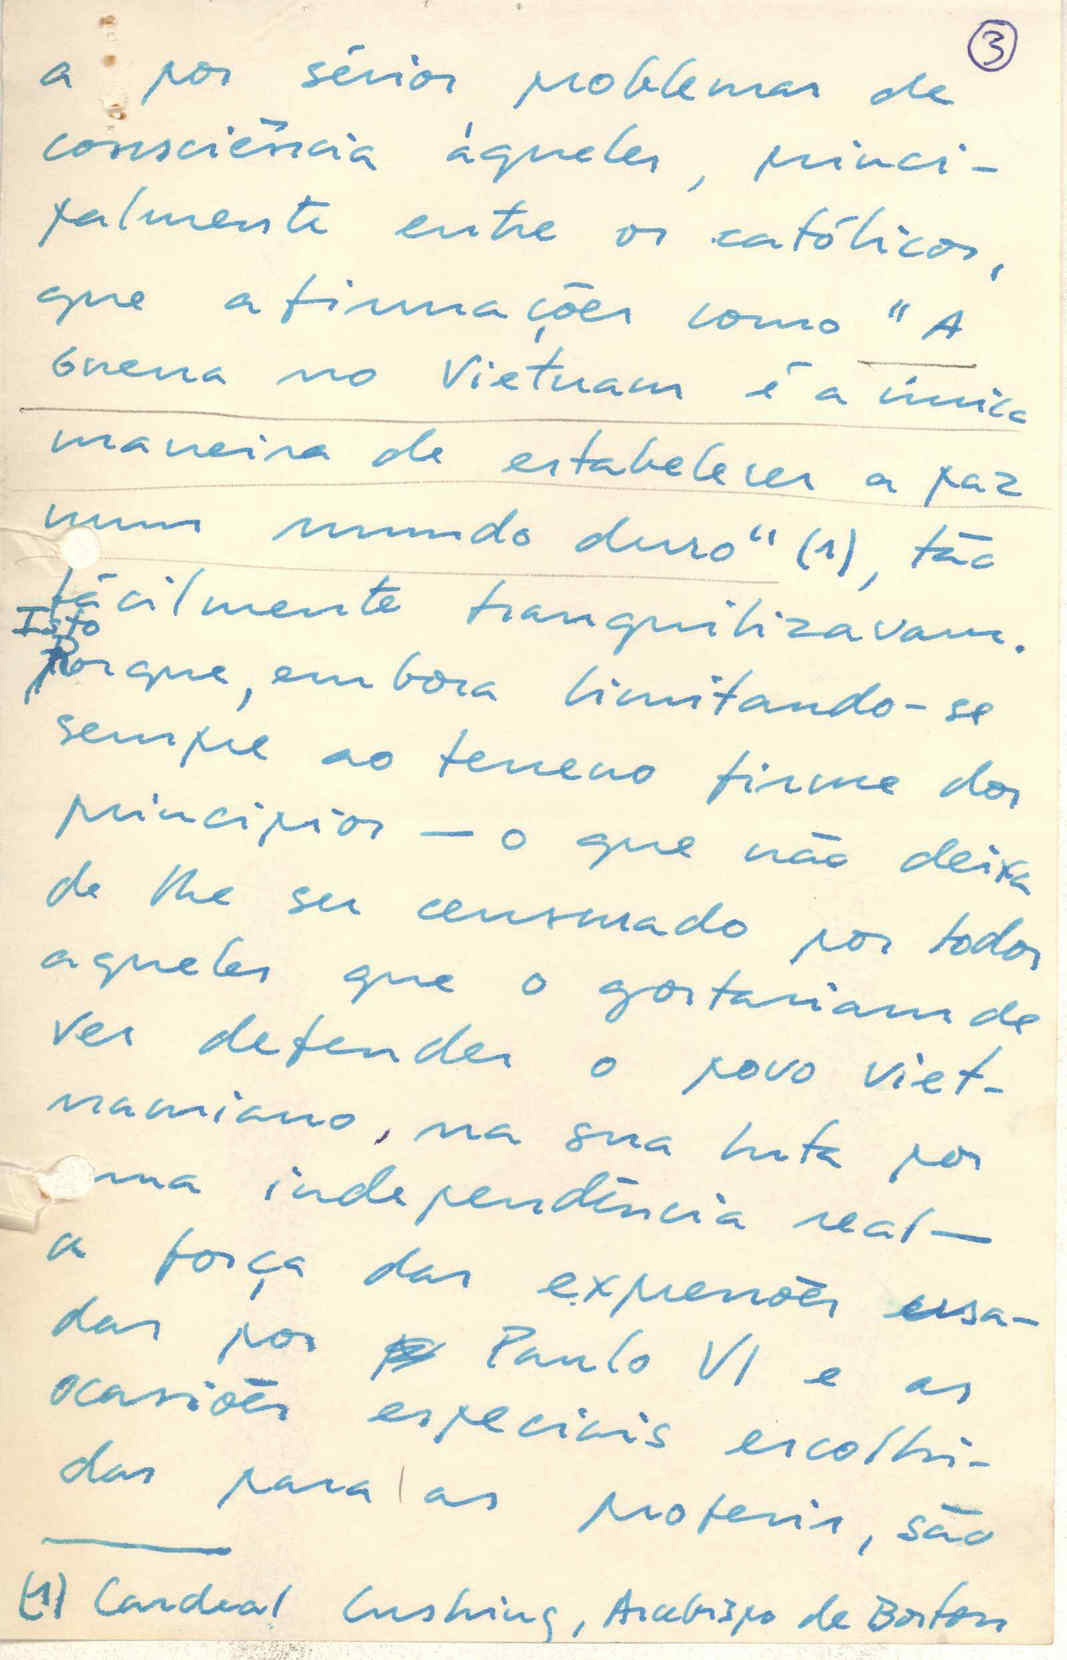 3
a por sérios problemas de
consciência àqueles, princi-
palmente entre os católicos,
que afirmações como "A
Guerra no Vietnam é a única
maneira de estabelecer a paz
num mundo duro" (1), tão
fácilmente tranquilizavam.
Isto
Porque, embora limitando-se
sempre ao terreno firme dos
princípios — o que não deixa
de lhe ser censurado por todos
aqueles que o gostariam de
ver defender o povo viet-
namiano, na sua luta por
uma independência real —
a força das expressões usa-
das por Paulo VI e as
ocasiões especiais escolhi-
das para as proferir, são
(1) Cardeal Cushing, Arcebispo de Boston